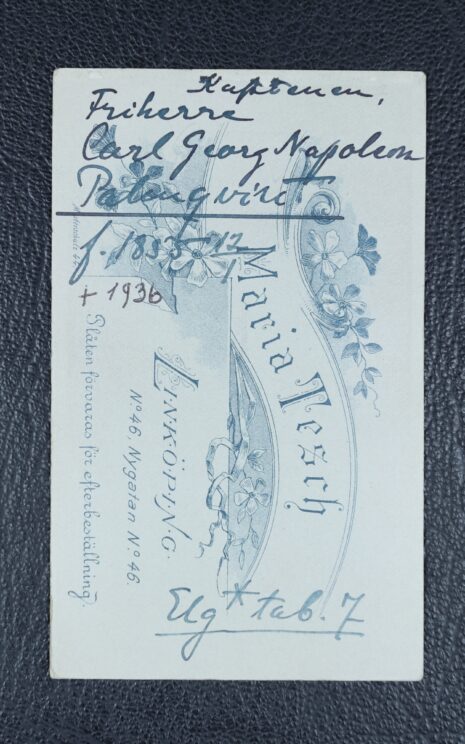 Kaptenen,
Friherre
Carl Georg Napoleon
Palmqvist
f. 1855 17/1
+ 1936
Maria Tesch
LINKÖPING.
No 46, Nygatan No 46.
Plåten förvaras för efterbeställning.
Elg* tab. 7